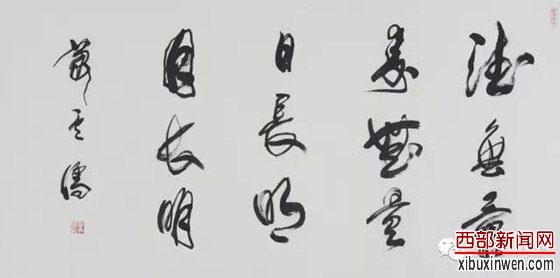 德無量
寿無量
日長明
月长明
萧云儒
西部新闻网
xibuxinwen.com